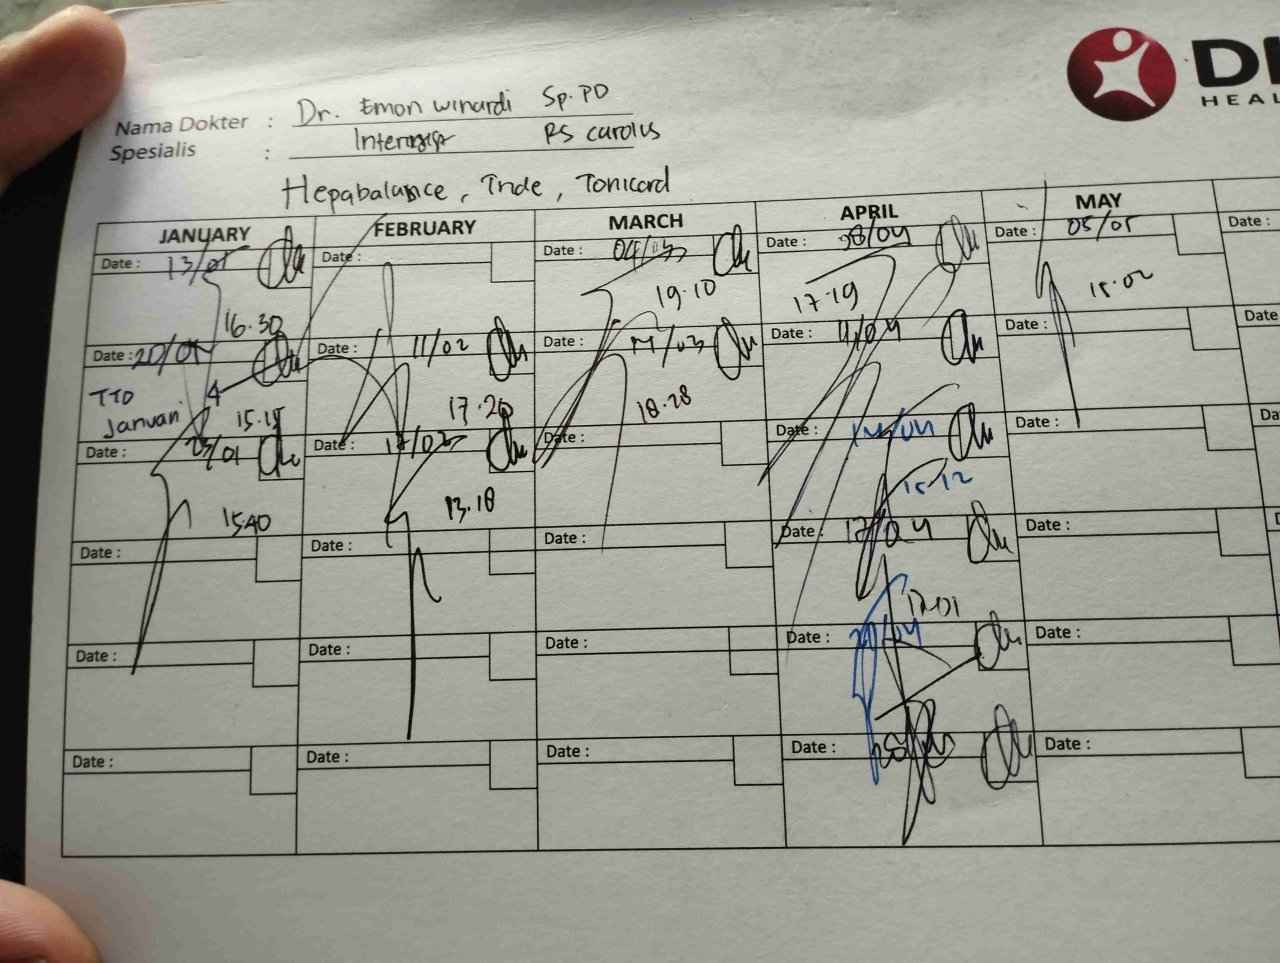 Nama Dokter : Dr. Emon Winardi Sp.PD
Spesialis : Internist RS Carolus
HEAL
Hepabalance, Tride, Tonicard
JANUARY FEBRUARY MARCH APRIL MAY
Date : 13/01 Date : Date : 04/03 Date : 08/04 Date : 05/05 Date :
16.30 19.10 17.19 15.02
Date : 20/01 Date : 11/02 Date : 11/03 Date : 11/04 Date : Date
TTD
Januari 15.15 17.20 18.28
Date : 23/01 Date : 17/02 Date : Date : 14/04 Date : Da
15.40 13.18 15.12
Date : Date : Date : Date : 17/04 Date : D
17.01
Date : Date : Date : Date : 21/04 Date :
Date : Date : Date : Date : Date :